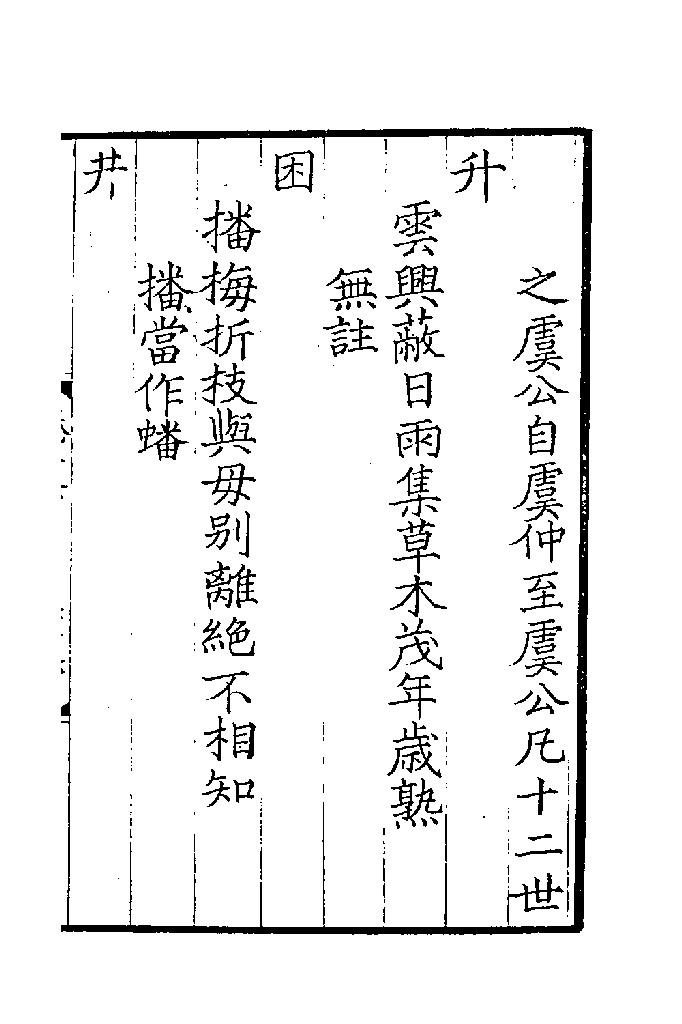 之虞公自虞仲至虞公凡十二世
升
雲興蔽日雨集草木茂年歲熟
無註
困
播梅折枝與毋别離絶不相知
播當作蟠
井